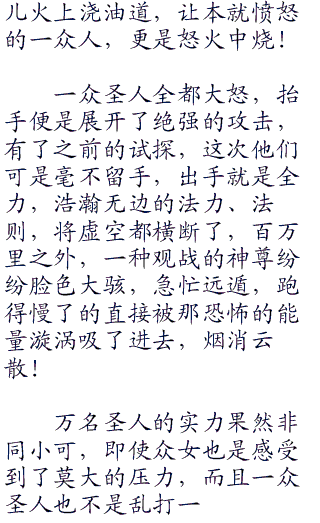 儿火上浇油道，让本就愤怒
的一众人，更是怒火中烧！
一众圣人全都大怒，抬
手便是展开了绝强的攻击，
有了之前的试探，这次他们
可是毫不留手，出手就是全
力，浩瀚无边的法力、法
则，将虚空都横断了，百万
里之外，一种观战的神尊纷
纷脸色大骇，急忙远遁，跑
得慢了的直接被那恐怖的能
量漩涡吸了进去，烟消云
散！
万名圣人的实力果然非
同小可，即使众女也是感受
到了莫大的压力，而且一众
圣人也不是乱打一